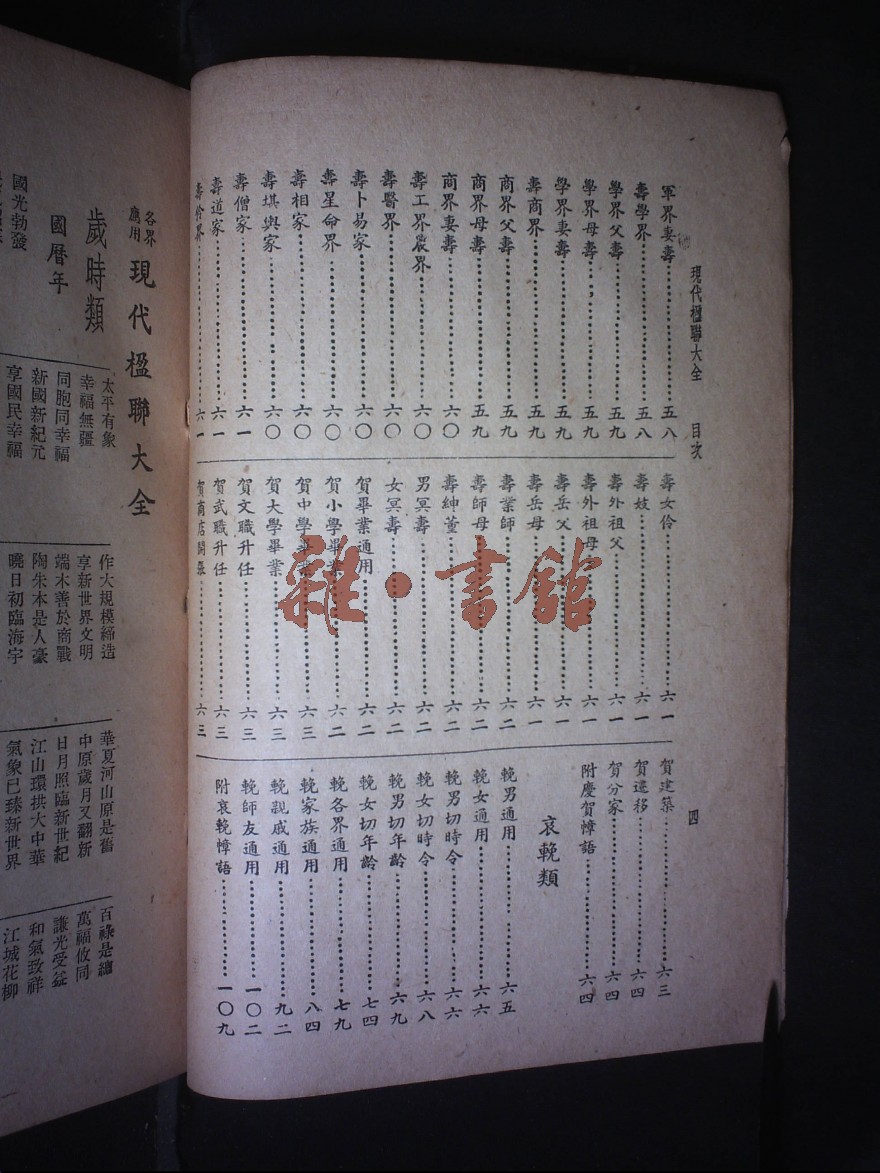 現代楹聯大全 目次 四
軍界妻壽 五八
壽學界 五八
學界父壽 五九
學界母壽 五九
學界妻壽 五九
壽商界 五九
商界父壽 五九
商界母壽 五九
商界妻壽 六〇
壽工界農界 六〇
壽醫界 六〇
壽卜易家 六〇
壽星命界 六〇
壽相家 六〇
壽堪輿家 六〇
壽僧家 六一
壽道家 六一
壽伶界 六一
壽女伶 六一
壽妓 六一
壽外祖父 六一
壽外祖母 六一
壽岳父 六一
壽岳母 六一
壽業師 六二
壽師母 六二
壽紳董 六二
男冥壽 六二
女冥壽 六二
賀畢業通用 六二
賀小學畢業 六二
賀中學畢業 六三
賀大學畢業 六三
賀文職升任 六三
賀武職升任 六三
賀商店開張 六三
賀建築 六三
賀遷移 六四
賀分家 六四
附慶賀幛語 六四
哀輓類
輓男通用 六五
輓女通用 六六
輓男切時令 六六
輓女切時令 六八
輓男切年齡 六九
輓女切年齡 七四
輓各界通用 七九
輓家族通用 八四
輓親戚通用 九二
輓師友通用 一〇二
附哀輓幛語 一〇九
各界應用 現代楹聯大全
歲時類
國曆年
國光勃發
太平有象
幸福無疆
同胞同幸福
新國新紀元
享國民幸福
作大規模締造
享新世界文明
端木善於商戰
陶朱本是人豪
曉日初臨海宇
華夏河山原是舊
中原歲月又翻新
日月照臨新世紀
江山環拱大中華
氣象已臻新世界
百祿是總
萬福攸同
謙光受益
和氣致祥
江城花柳
一
雜·書館